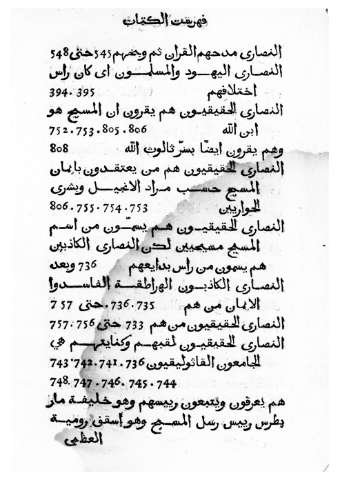 فهرست الكتاب
النصارى مدحهم القران ثم وبخهم 545 حتى 548
النصارى اليهود والمسلمون اى كان راس
اختلافهم 395 . 394
النصارى الحقيقيون هم يقرون ان المسيح هو
ابن الله 806 . 805 . 753 . 752
وهم يقرون ايضًا بسرّ ثالوث الله 808
النصارى الحقيقيون هم من يعتقدون بايمان
المسيح حسب مراد الانجيل وبشرى
الحواريين 753 . 754 . 755 . 806
النصارى الحقيقيون هم يسمّون من اسم
المسيح مسيحيين لكن النصارى الكاذبين
هم يسمون من راس بدايعهم 736 وبعد
النصارى الكاذبون الهراطقة الفاسدوا
الايمان من هم 735 . 736 . حتى 757
النصارى الحقيقيون من هم 733 حتى 756 . 757
النصارى الحقيقيون لقبهم وكنايتهم هي
الجامعون القاثوليقيون 736 . 741 . 742 . 743
744 . 745 . 746 . 747 . 748
هم يعرفون ويتبعون رييسهم وهو خليفة مار
بطرس رييس رسل المسيح وهو أسقف رومية
العظمى